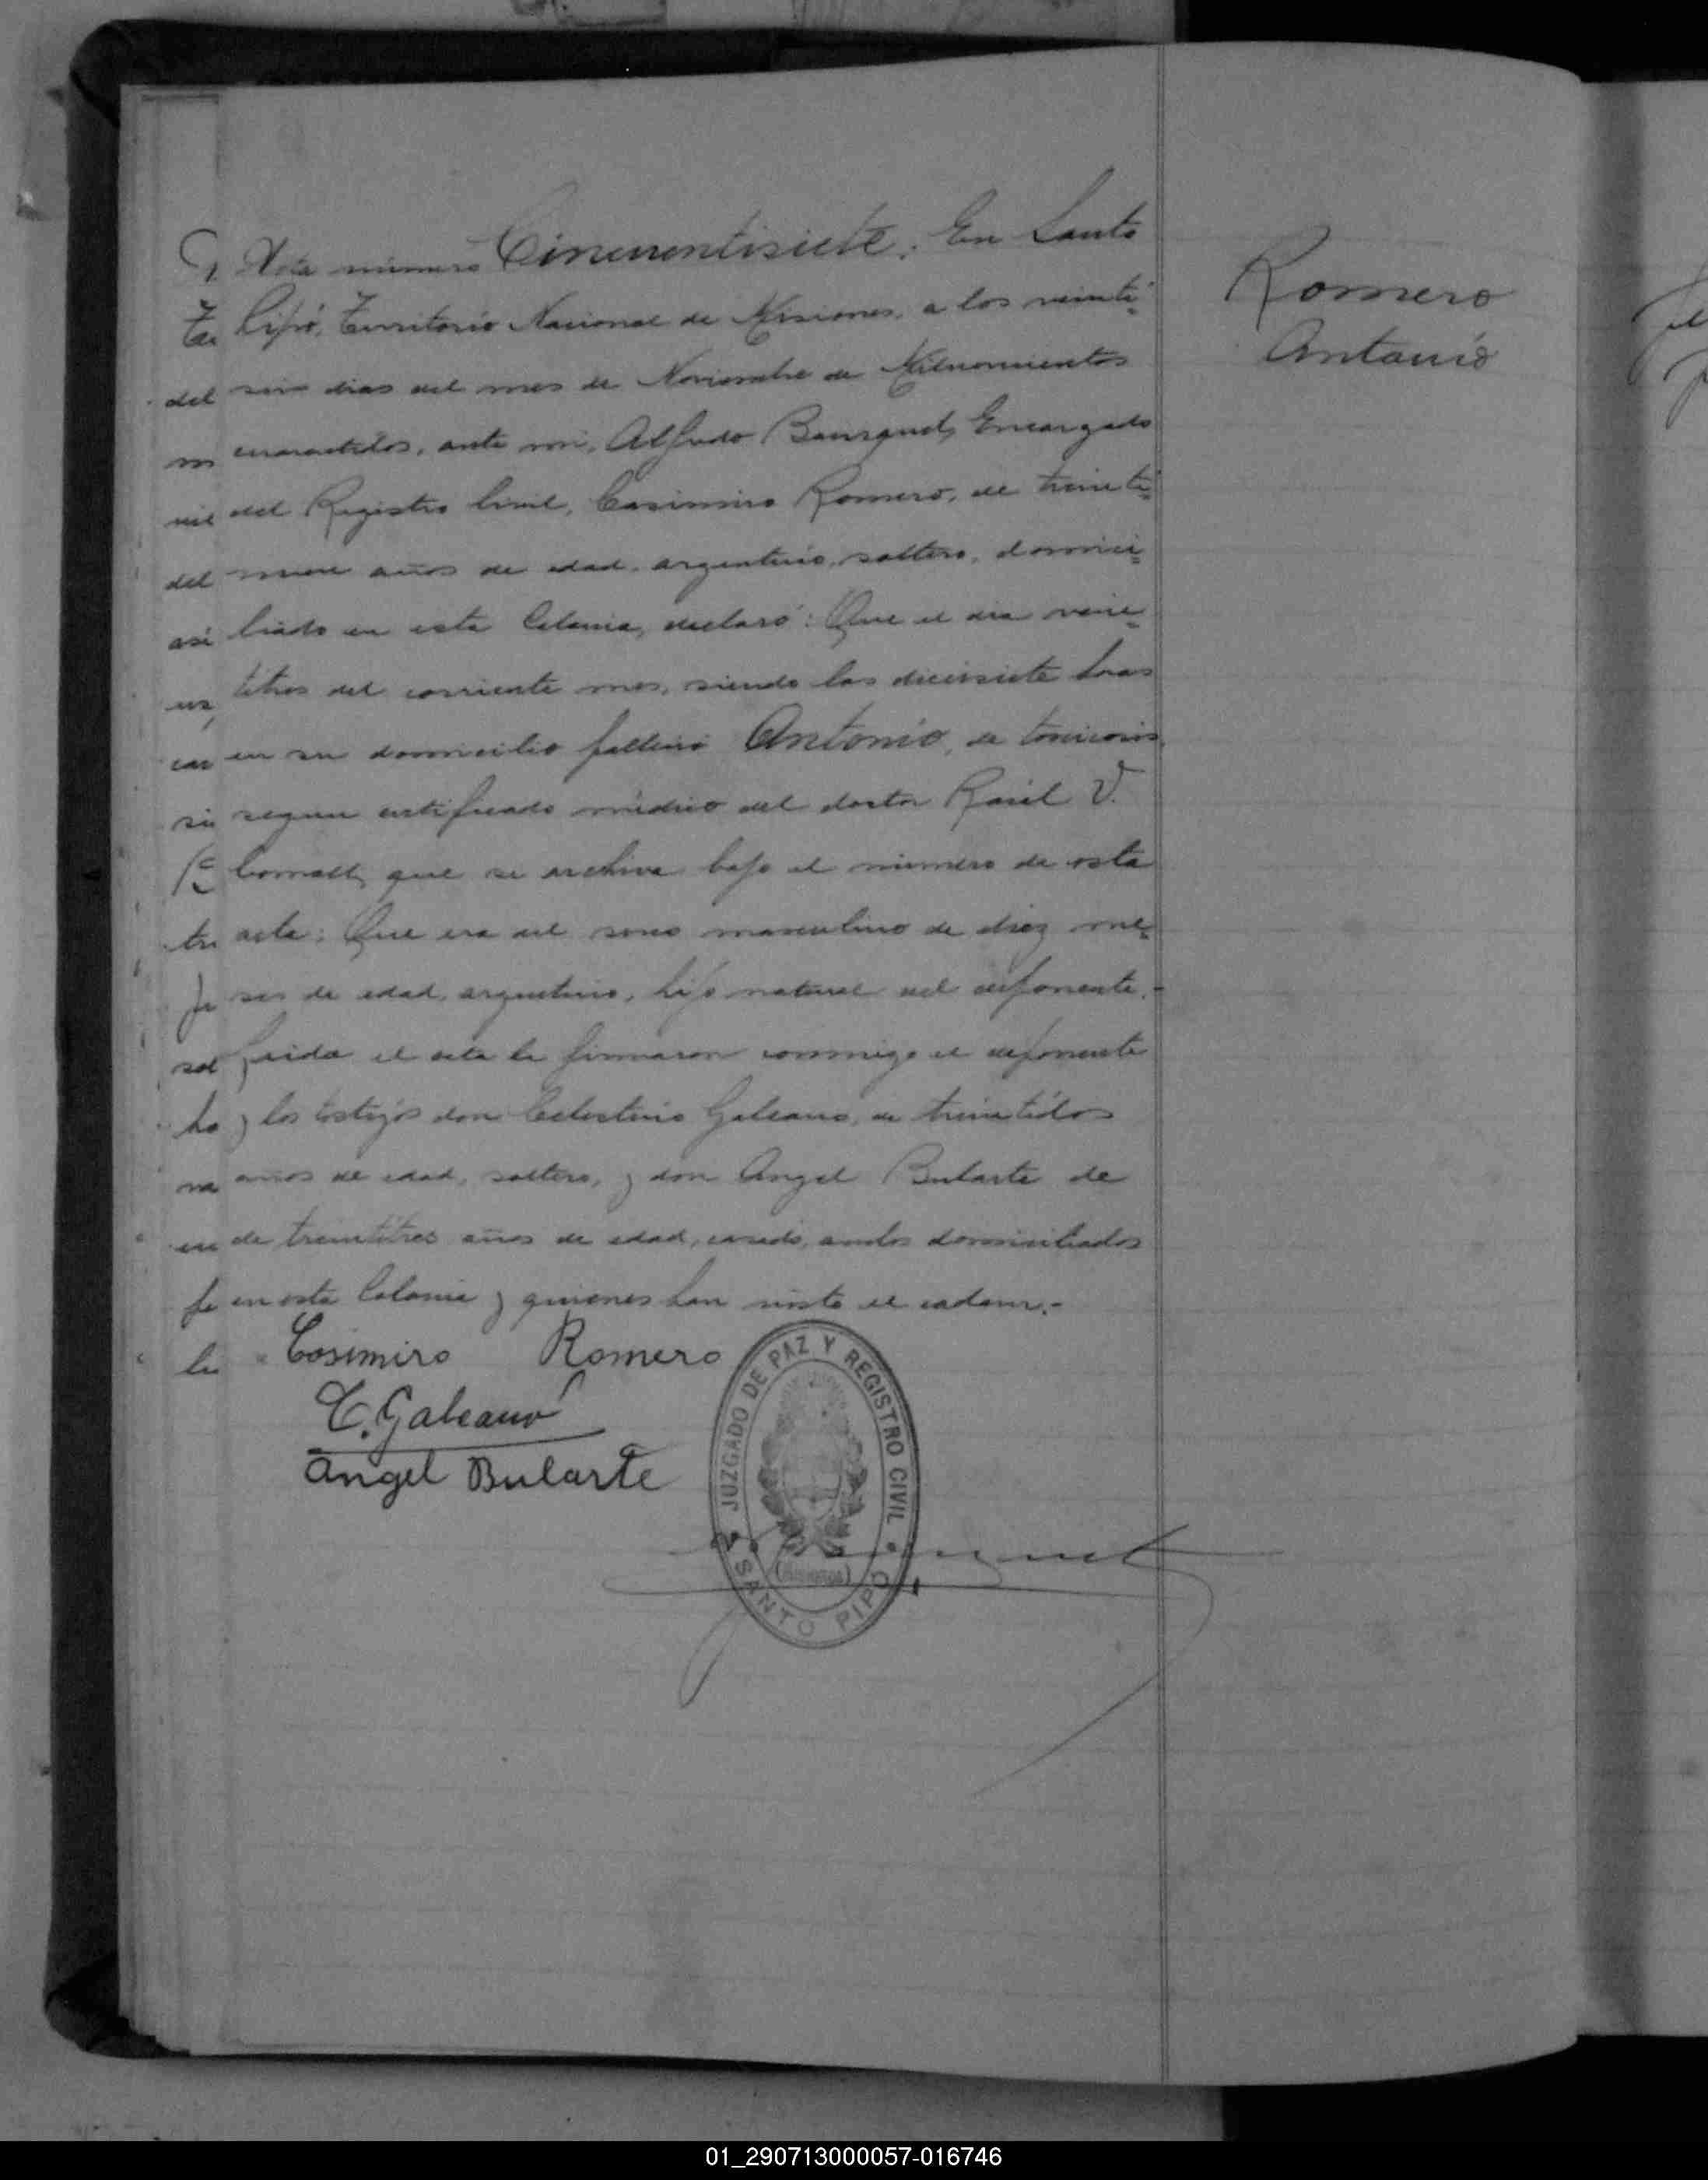 Acta número Cincuentisiete. En Santo
Pipó, Territorio Nacional de Misiones, a los veinti=
seis dias del mes de Noviembre de Milnovecientos
cuarentidos, ante mi, Alfredo Encargado
del Registro Civil, Casimiro Romero, de treinti=
nueve años de edad, argentino, soltero, domici=
liado en esta Colonia, declaró: Que el dia vein=
titres del corriente mes, siendo las diecisiete horas
en su domicilio falleció Antonio, de
segun certificado médico del doctor Raúl V.
que se archiva bajo el número de esta
acta: Que era del sexo masculino de diez me=
ses de edad, argentino, hijo natural del deponente.-
Leida el acta la firmaron conmigo el deponente
y los testigos don Celestino Galeano, de treintidos
años de edad, soltero, y don Angel Bularte de
de treintitres años de edad, casado, ambos domiciliados
en esta Colonia y quienes han visto el cadaver.-
Casimiro Romero
C. Galeano
Angel Bularte
JUZGADO DE PAZ Y REGISTRO CIVIL
(Misiones)
SANTO PIPÓ
Romero
Antonio
del
del
asi
01_290713000057-016746